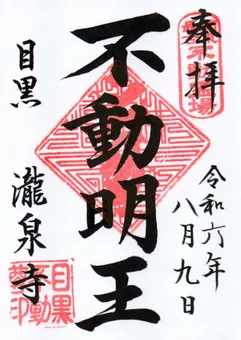 奉拝
令和六年
八月九日
不動明王
目黒
瀧泉寺
目黒
不動